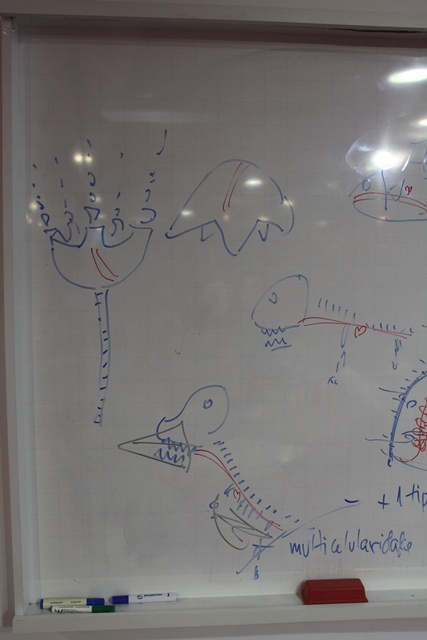 + 1 tip
multicelularidade